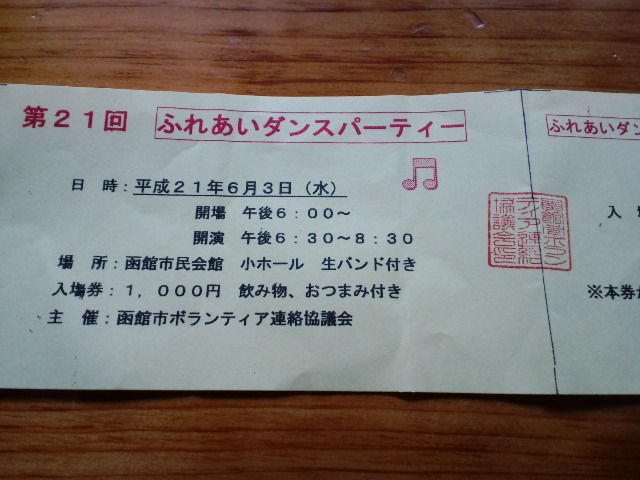 第２１回 ふれあいダンスパーティー
日 時：平成２１年６月３日（水）
開場 午後６：００～
開演 午後６：３０～８：３０
場 所：函館市民会館 小ホール 生バンド付き
入場券：１，０００円 飲み物、おつまみ付き
主 催：函館市ボランティア連絡協議会
函館市ボランティア連絡協議会
ふれあいダン
入 場
※本券